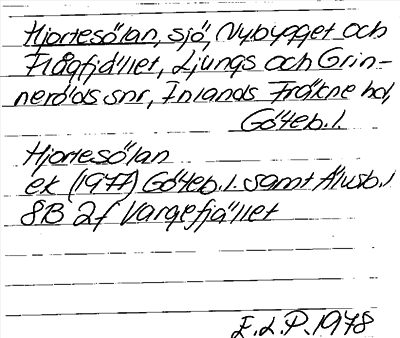 Hjortesölan, sjö, Nybygget och
Flågfjället, Ljungs och Grin-
neröds snr, Inlands Fräkne hd,
Göteb.l.
Hjortesölan
ek (1977) Göteb.l. samt Älvsb.l
8B 2f Vargefjället
E.L.P. 1978